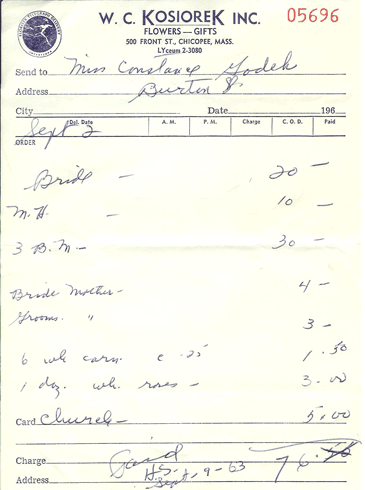 W. C. KOSIOREK INC. 05696
FLOWERS — GIFTS
500 FRONT ST., CHICOPEE, MASS.
LYceum 2-3080
Send to Miss Constance Godek
Address Burton St.
City Date 196
Del. Date A. M. P. M. Charge C. O. D. Paid
Sept 2
ORDER
Bride — 20 —
M. H. — 10 —
3 B. M — 30 —
Bride Mother — 4 —
Grooms " 3 —
6 wh carn. @ .25 1.50
1 doz. wh. roses — 3.00
Card Church — 5.00
Charge Paid 76.50
H.S. Sept. 9-63
Address